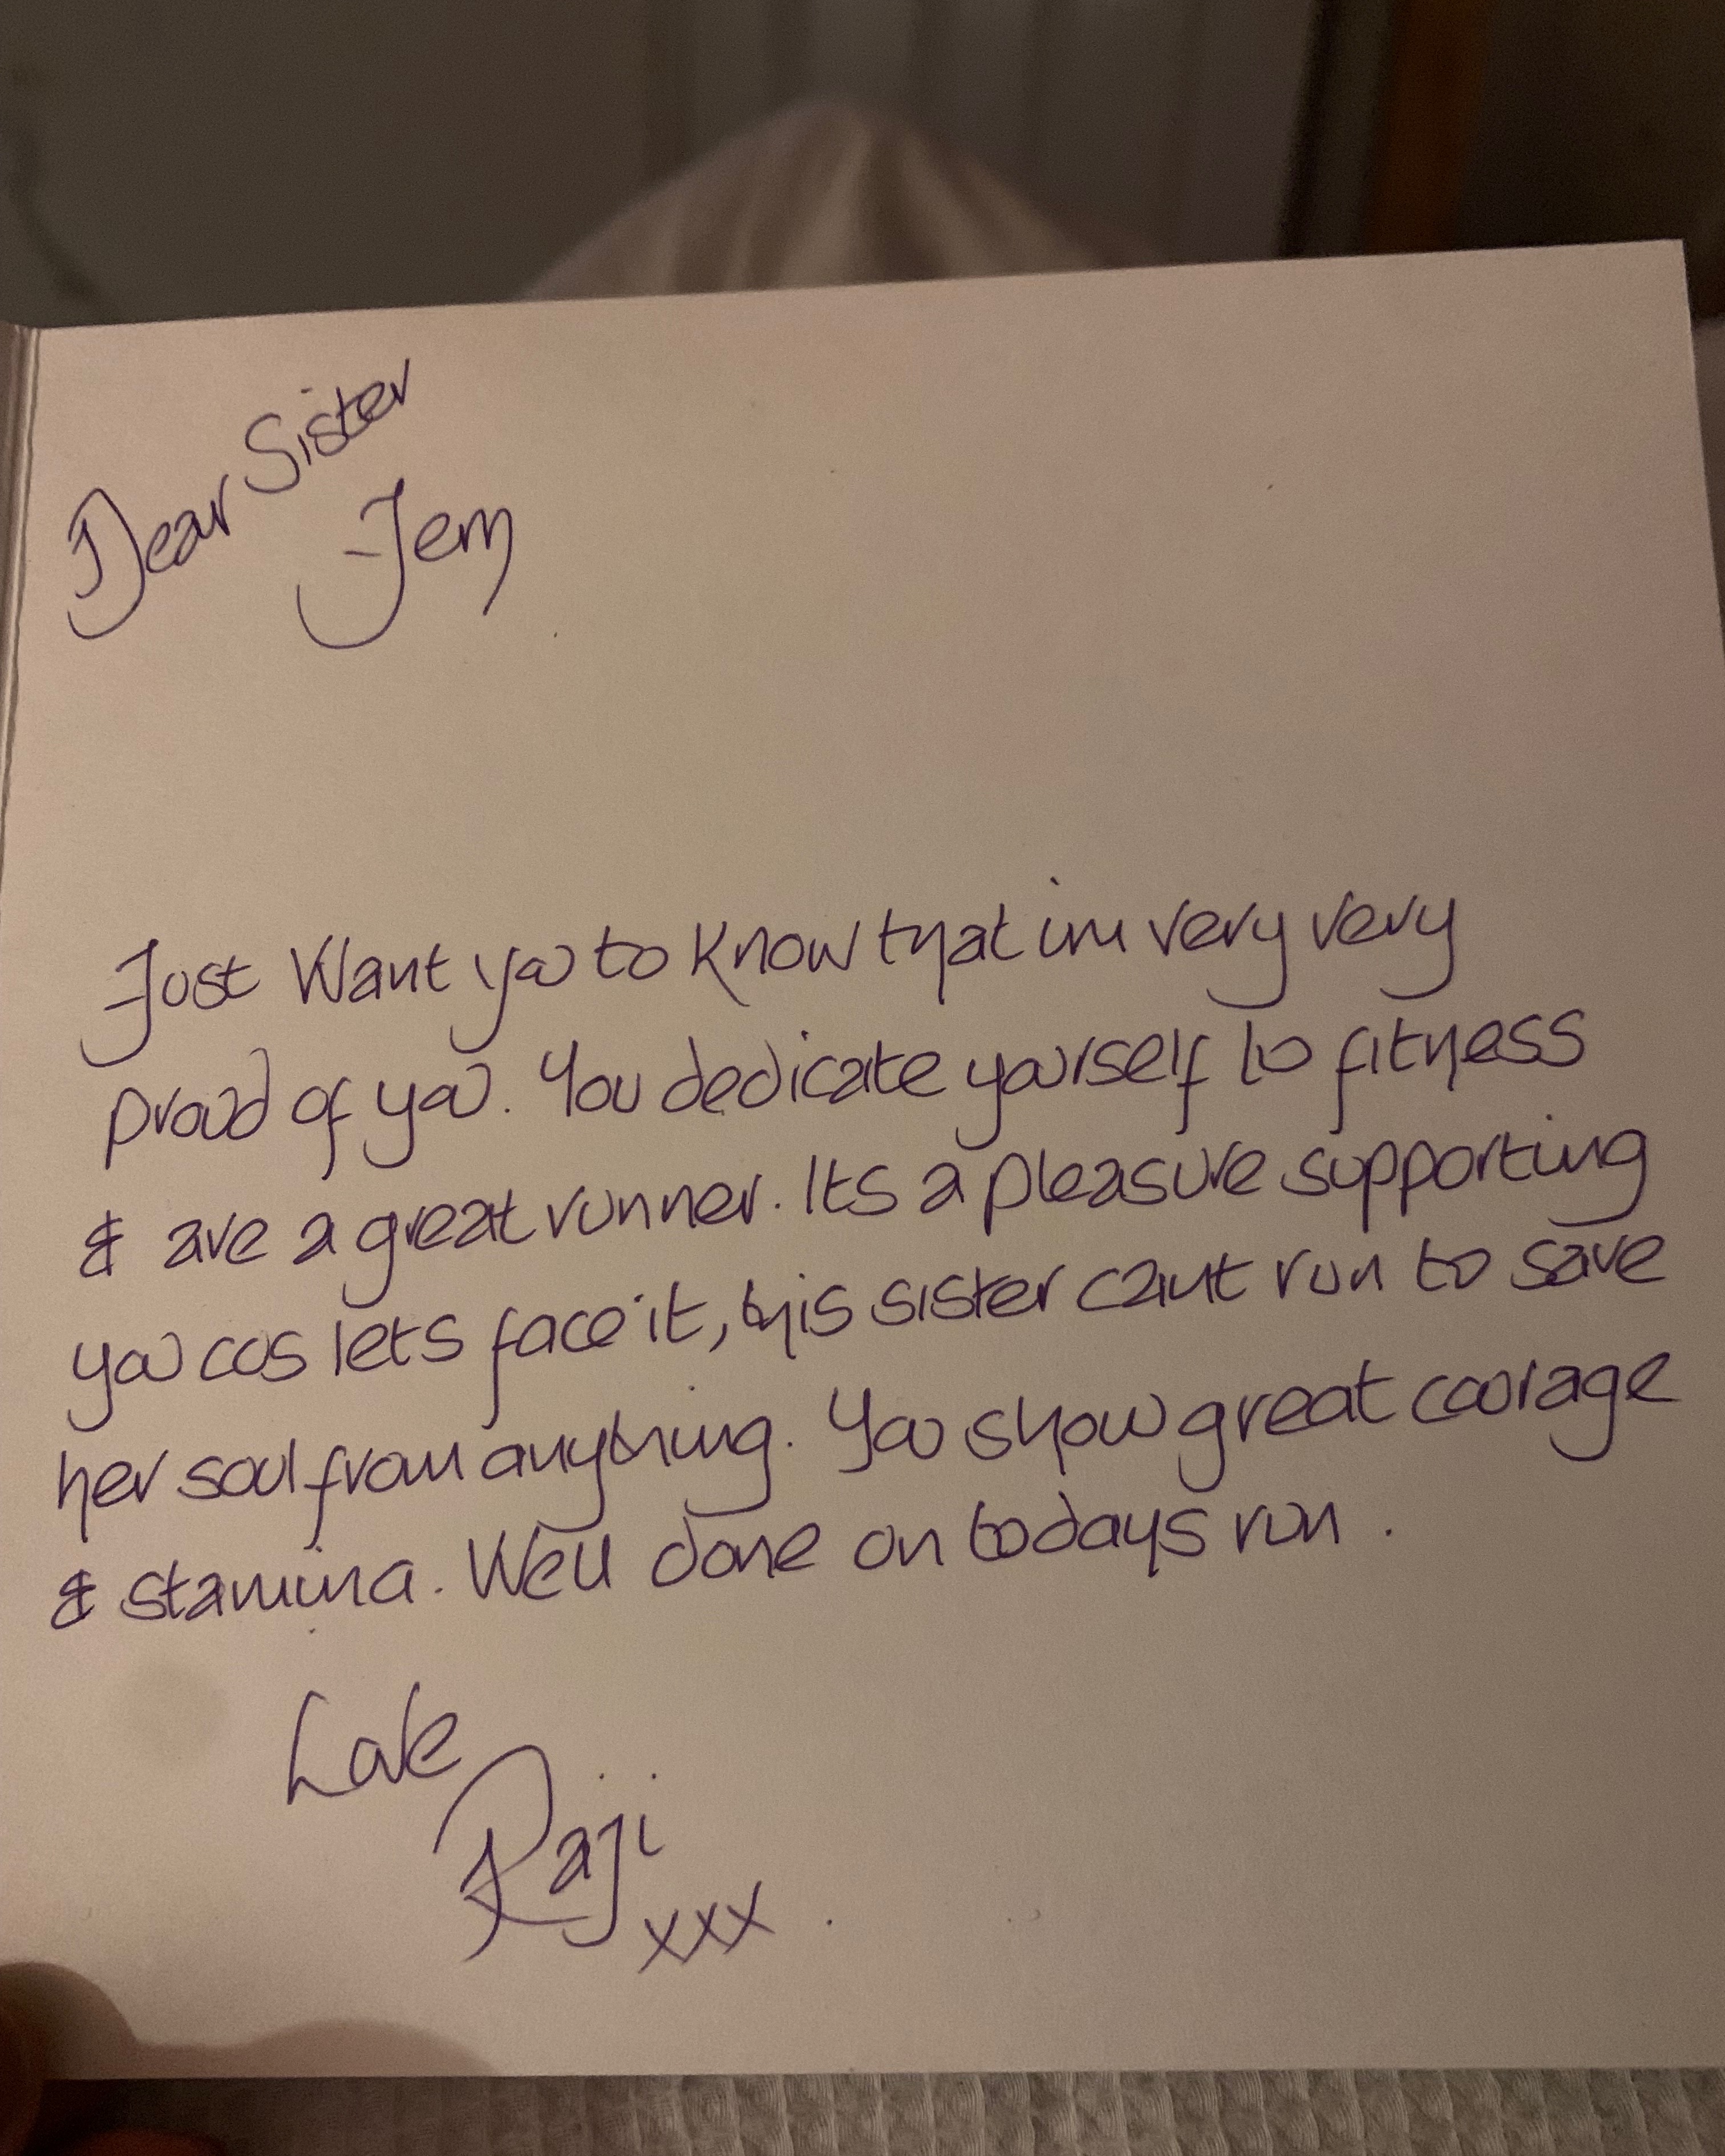 Dear Sister
Jem
Just want you to know that im very very
proud of you. You dedicate yourself to fitness
& are a great runner. Its a pleasure supporting
you cos lets face it, this sister cant run to save
her soul from anything. You show great courage
& stamina. Well done on todays run.
Love
Raji
xxx